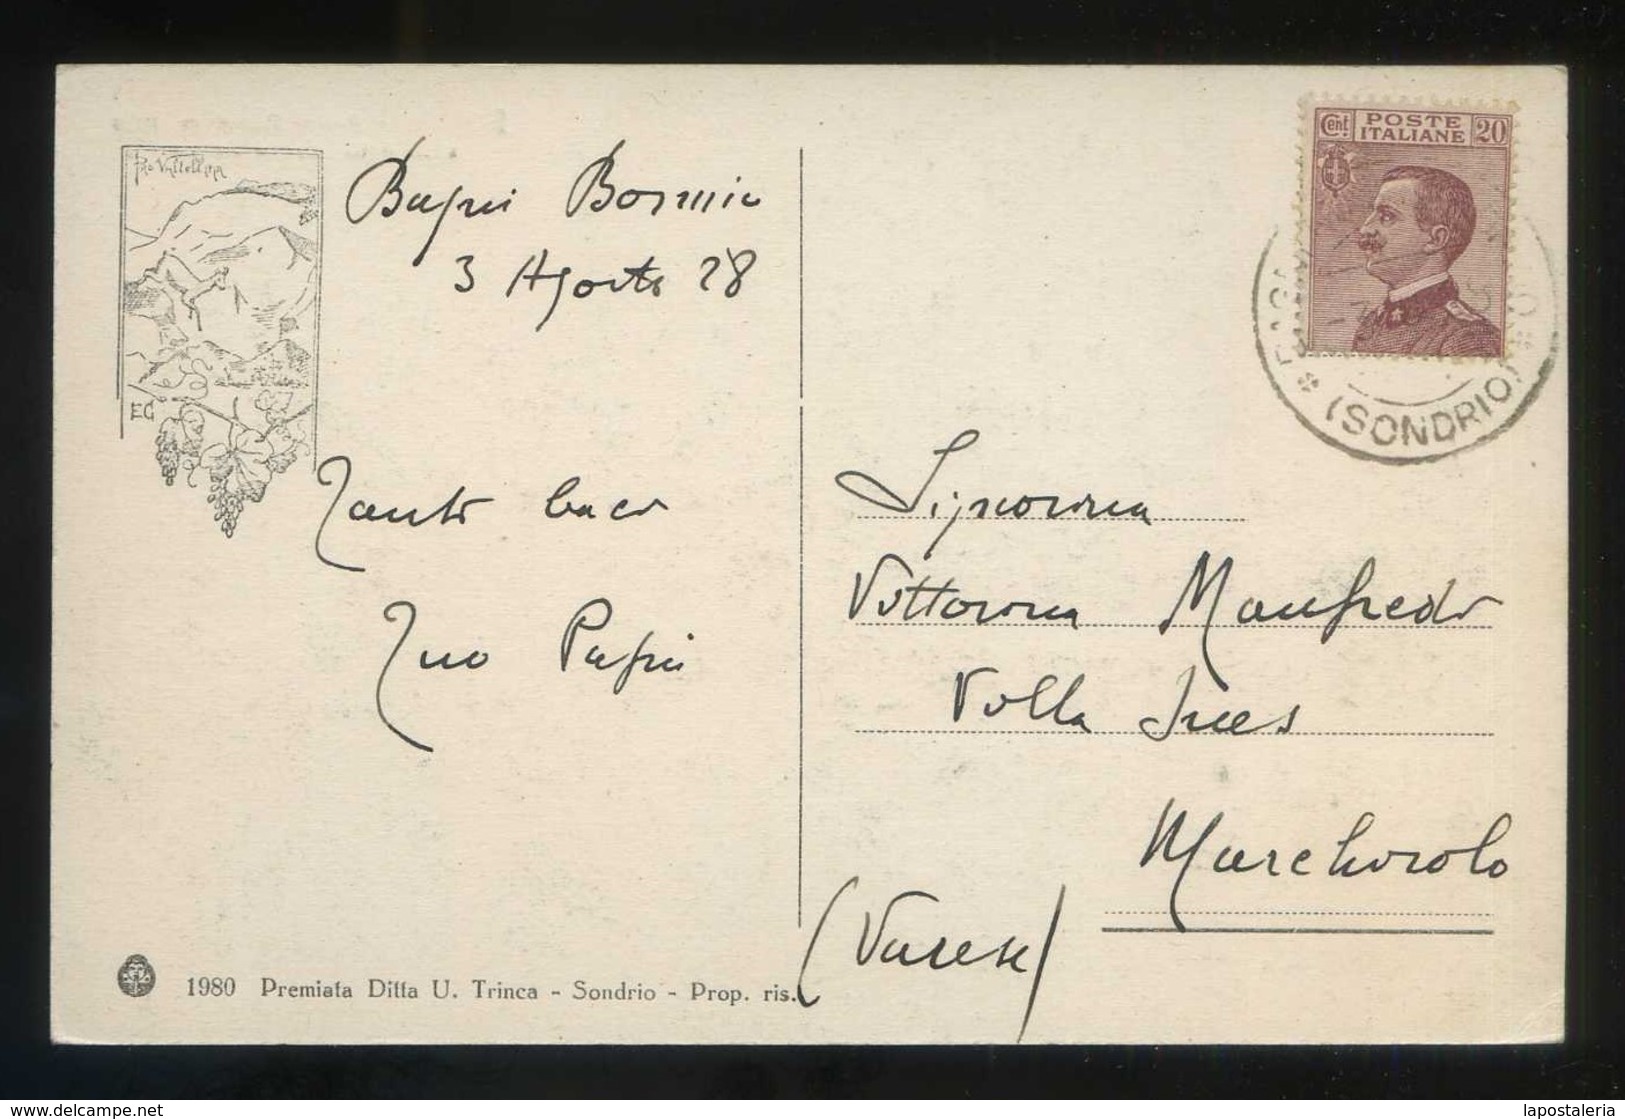 Pro Valtellina
Bagni Bormio
3 Agosto 28
EG
Tanti baci
Tuo Papà
1980 Premiata Ditta U. Trinca - Sondrio - Prop. ris.
Cent. POSTE ITALIANE 20
(SONDRIO)
Signorina
Vittorina Manfredi
Villa Ines
Marchirolo
(Varese)
www.delcampe.net
lapostaleria